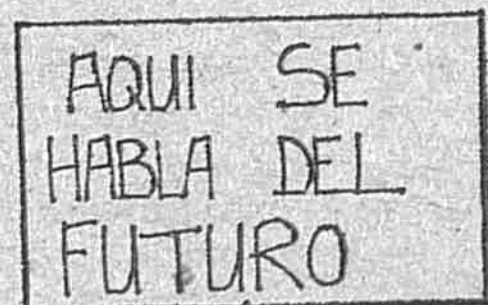 AQUI SE
HABLA DEL
FUTURO